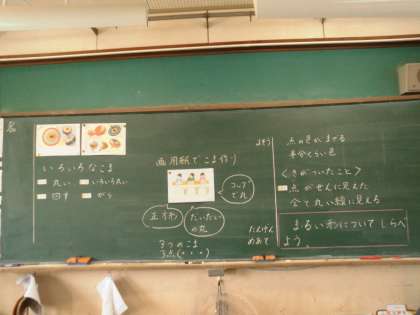 いろいろなこま
丸い いろいろな
回す がら
画用紙でこま作り
コップで丸
正しい円
だいたいの丸
3つのこま
3点(・・・)
よそう
点のきがまざる
半分くらい色
〈きがついたこと〉
点がせんに見えた
全て丸い線に見える
たんげん
めあて
まるい形についてしらべ
よう。